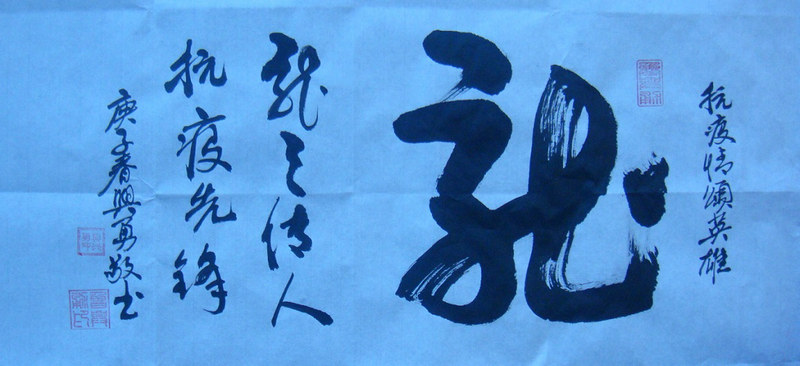 抗疫情頌英雄
龍
龍之传人
抗疫先锋
庚子春興勇敬书